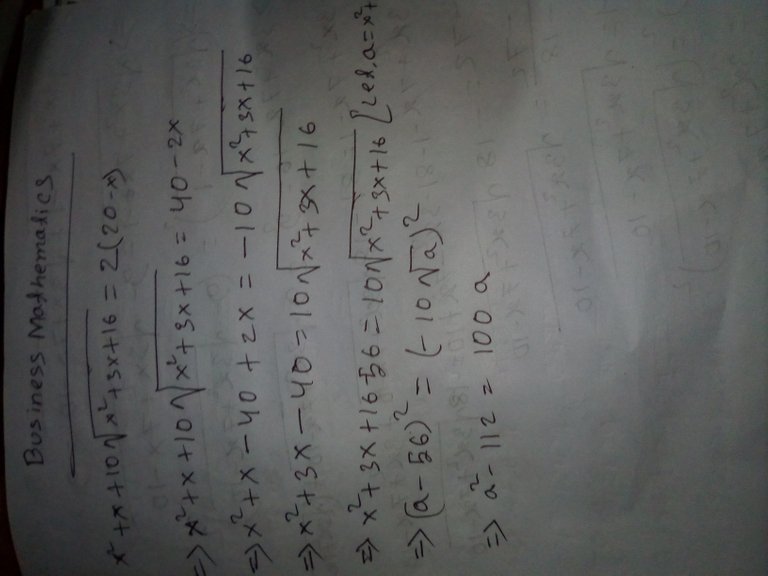 Business Mathematics
x² + x + 10√x²+3x+16 = 2(20-x)
=> x² + x + 10√x²+3x+16 = 40 - 2x
=> x² + x - 40 + 2x = -10√x²+3x+16
=> x² + 3x - 40 = 10√x²+3x+16
=> x² + 3x + 16 - 56 = 10√x²+3x+16 [Let, a = x²+
=> (a - 56)² = (-10√a)²
=> a² - 112 = 100 a